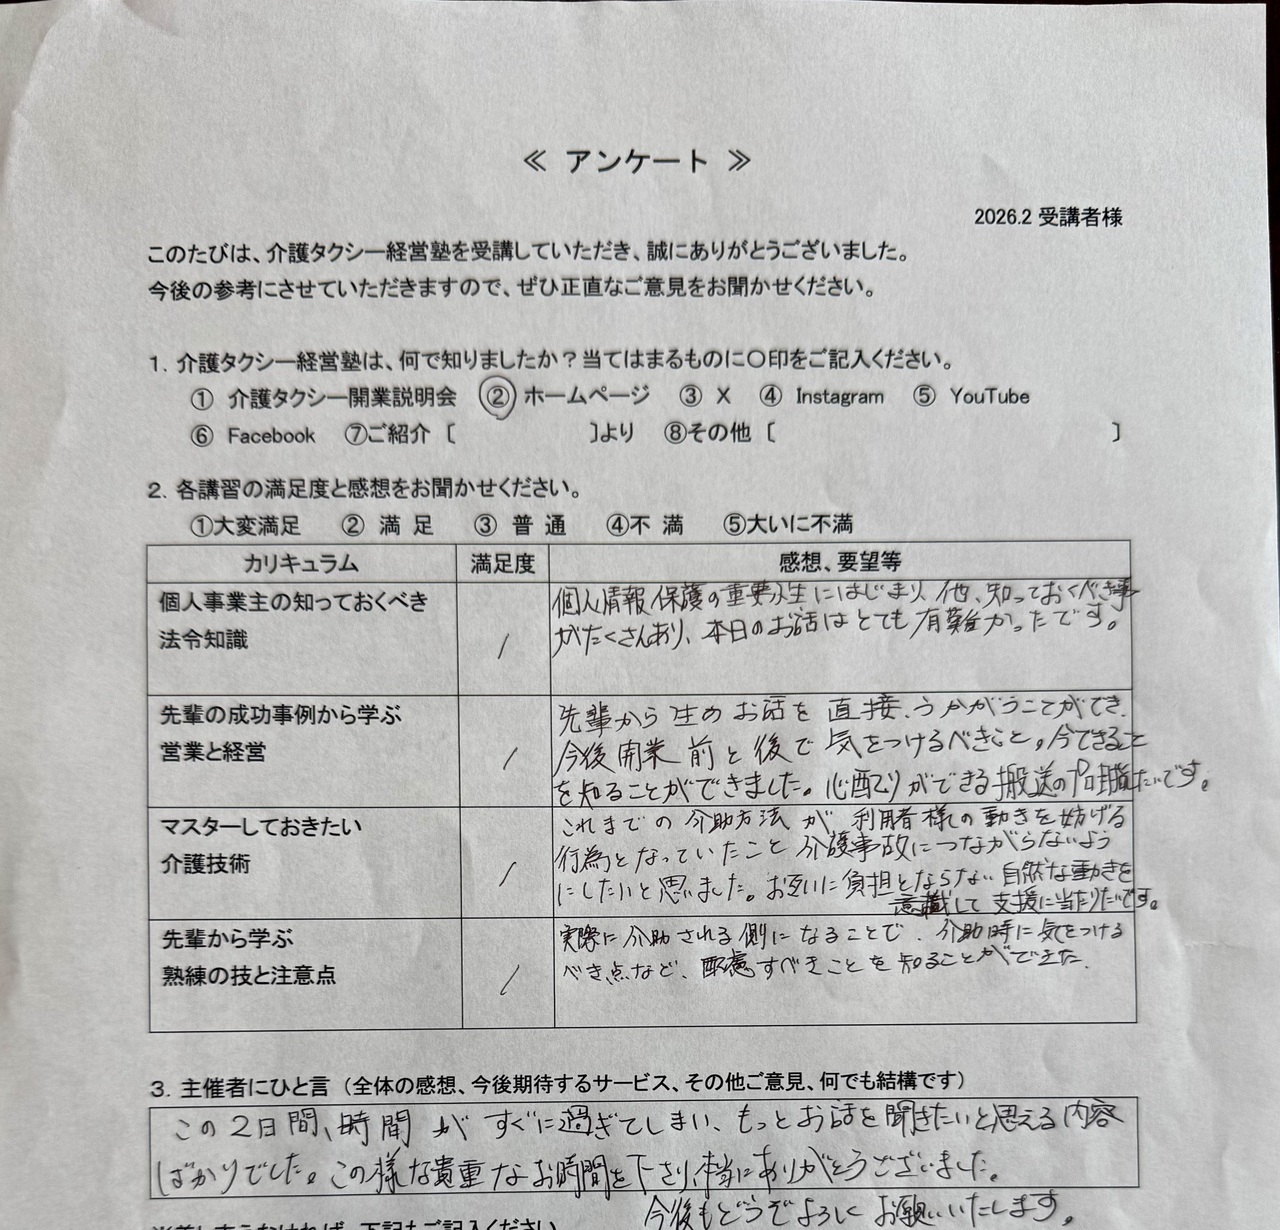 ≪ アンケート ≫
2026.2 受講者様
このたびは、介護タクシー経営塾を受講していただき、誠にありがとうございました。
今後の参考にさせていただきますので、ぜひ正直なご意見をお聞かせください。
1. 介護タクシー経営塾は、何で知りましたか？当てはまるものに〇印をご記入ください。
① 介護タクシー開業説明会 ② ホームページ ③ X ④ Instagram ⑤ YouTube
⑥ Facebook ⑦ご紹介〔 〕より ⑧その他〔 〕
2. 各講習の満足度と感想をお聞かせください。
①大変満足 ② 満 足 ③ 普 通 ④不 満 ⑤大いに不満
カリキュラム 満足度 感想、要望等
個人事業主の知っておくべき
法令知識
1
個人情報保護の重要性にはじまり、他、知っておくべき事
がたくさんあり、本日のお話はとても有難かったです。
先輩の成功事例から学ぶ
営業と経営
1
先輩から生のお話を直接、うかがうことができ、
今後開業前と後で気をつけるべきこと、今できること
を知ることができました。心配りができる搬送のプロ職たいです。
マスターしておきたい
介護技術
1
これまでの介助方法が利用者様の動きを妨げる
行為となっていたこと介護事故につながらないよう
にしたいと思いました。お互いに負担とならない自然な動きを
意識して支援に当たりたいです。
先輩から学ぶ
熟練の技と注意点
1
実際に介助される側になることで、介助時に気をつける
べき点など、配慮すべきことを知ることができた。
3. 主催者にひと言（全体の感想、今後期待するサービス、その他ご意見、何でも結構です）
この2日間、時間がすぐに過ぎてしまい、もっとお話を聞きたいと思える内容
ばかりでした。この様な貴重なお時間を下さり、本当にありがとうございました。
今後もどうぞよろしくお願いいたします。